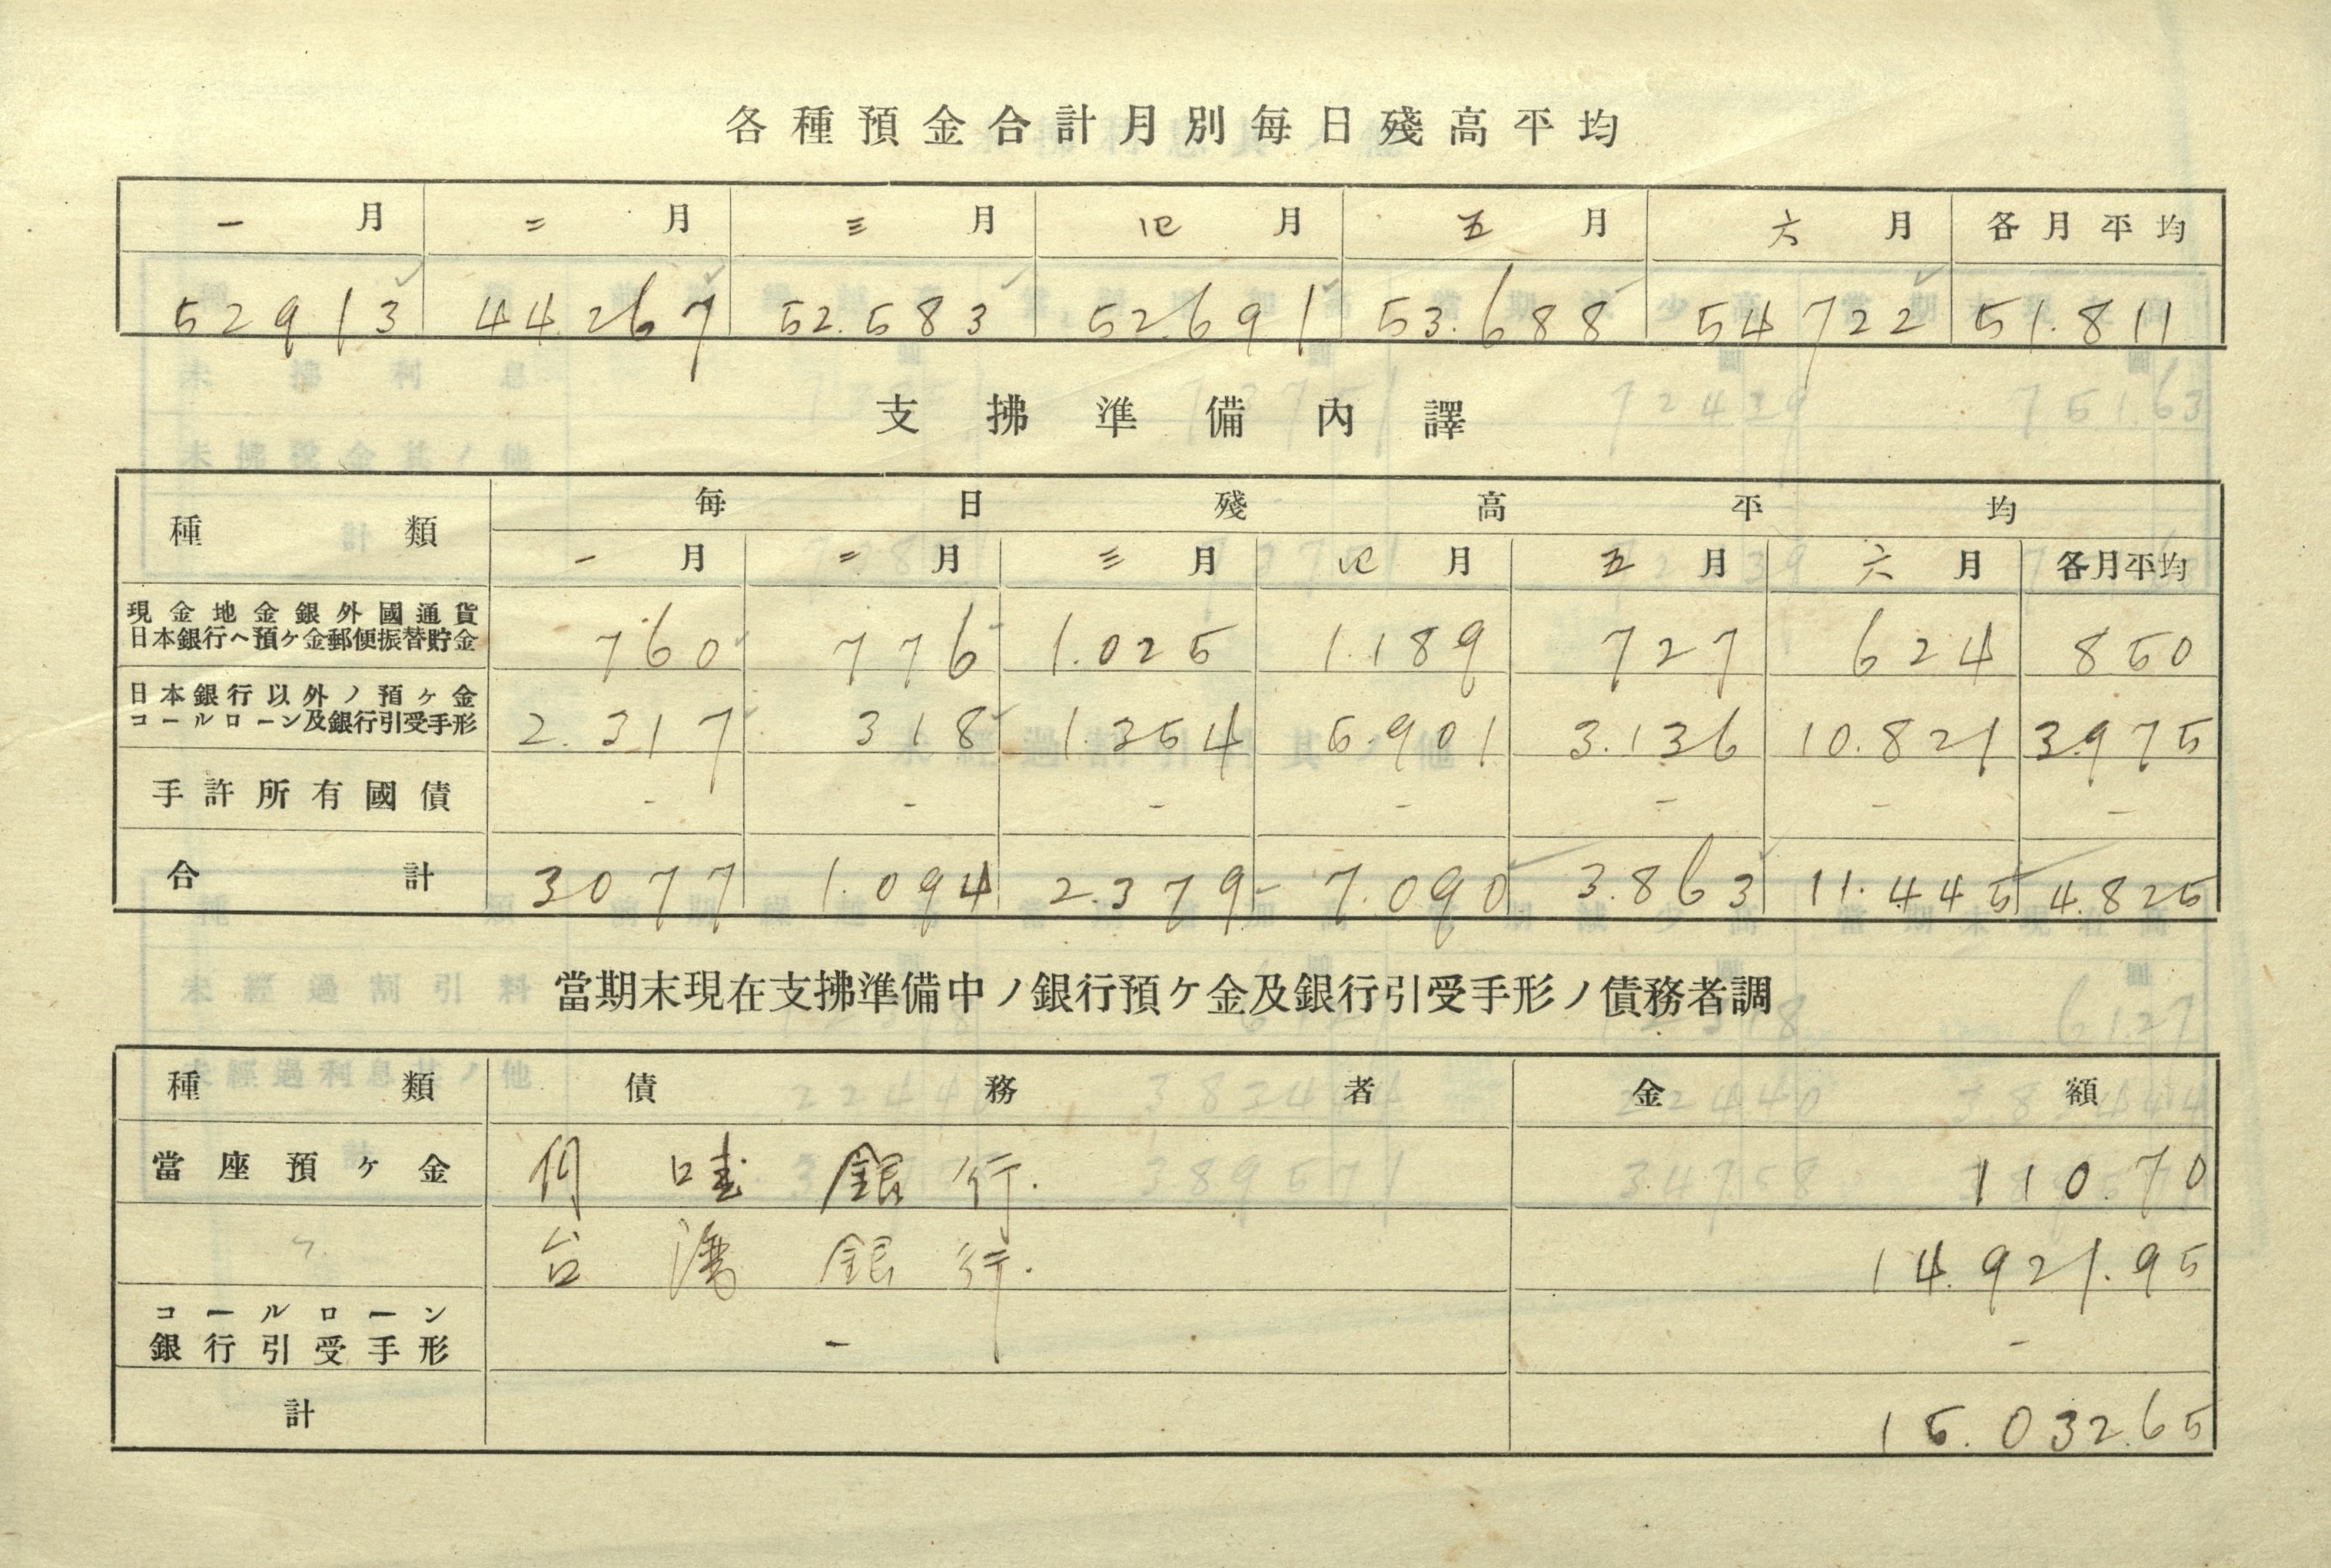 各種預金合計月別每日殘高平均
一月 二月 三月 四月 五月 六月 各月平均
52913 44.267 52.583 52.691 53.688 54722 51.811
支拂準備內譯
種類 每日殘高平均
一月 二月 三月 四月 五月 六月 各月平均
現金地金銀外國通貨
日本銀行ヘ預ケ金郵便振替貯金 760 776 1.025 1.189 727 624 850
日本銀行以外ノ預ケ金
コールローン及銀行引受手形 2.317 318 1.354 5.901 3.136 10.821 3.975
手許所有國債 - - - - - - -
合計 3077 1.094 2.379 7.090 3.863 11.445 4.825
當期末現在支拂準備中ノ銀行預ケ金及銀行引受手形ノ債務者調
種類 債務者 金額
當座預ケ金 銀行. 110.70
台灣銀行. 14.921.95
コールローン
銀行引受手形 - -
計 15.032.65